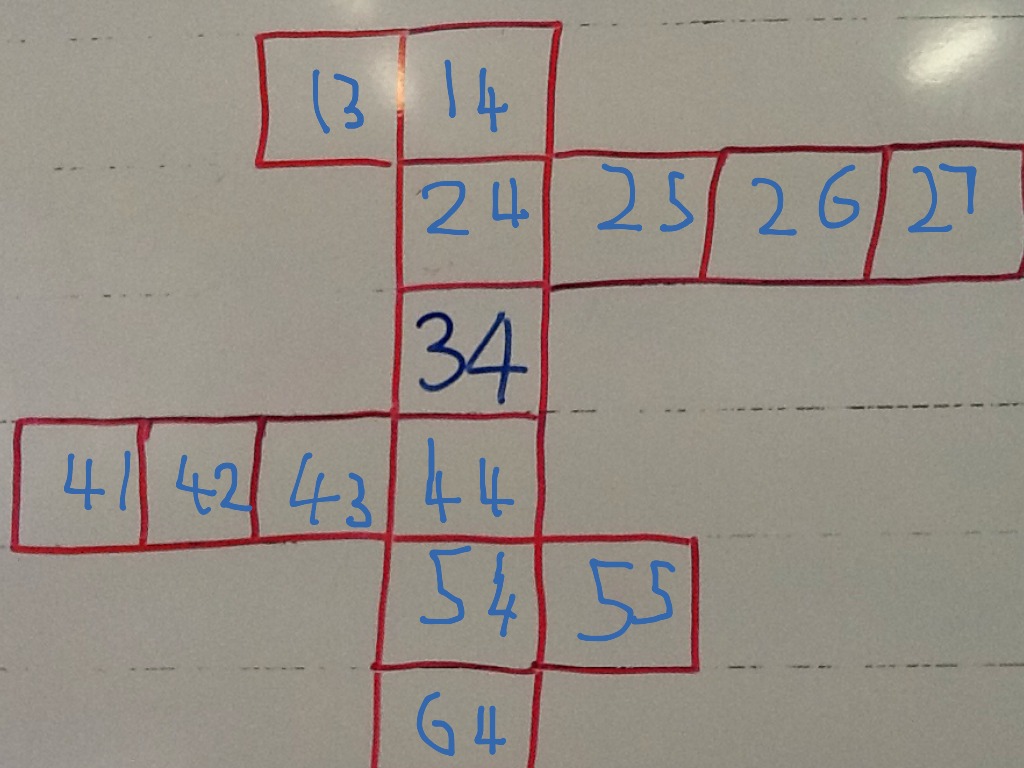 13 14
24 25 26 27
34
41 42 43 44
54 55
64